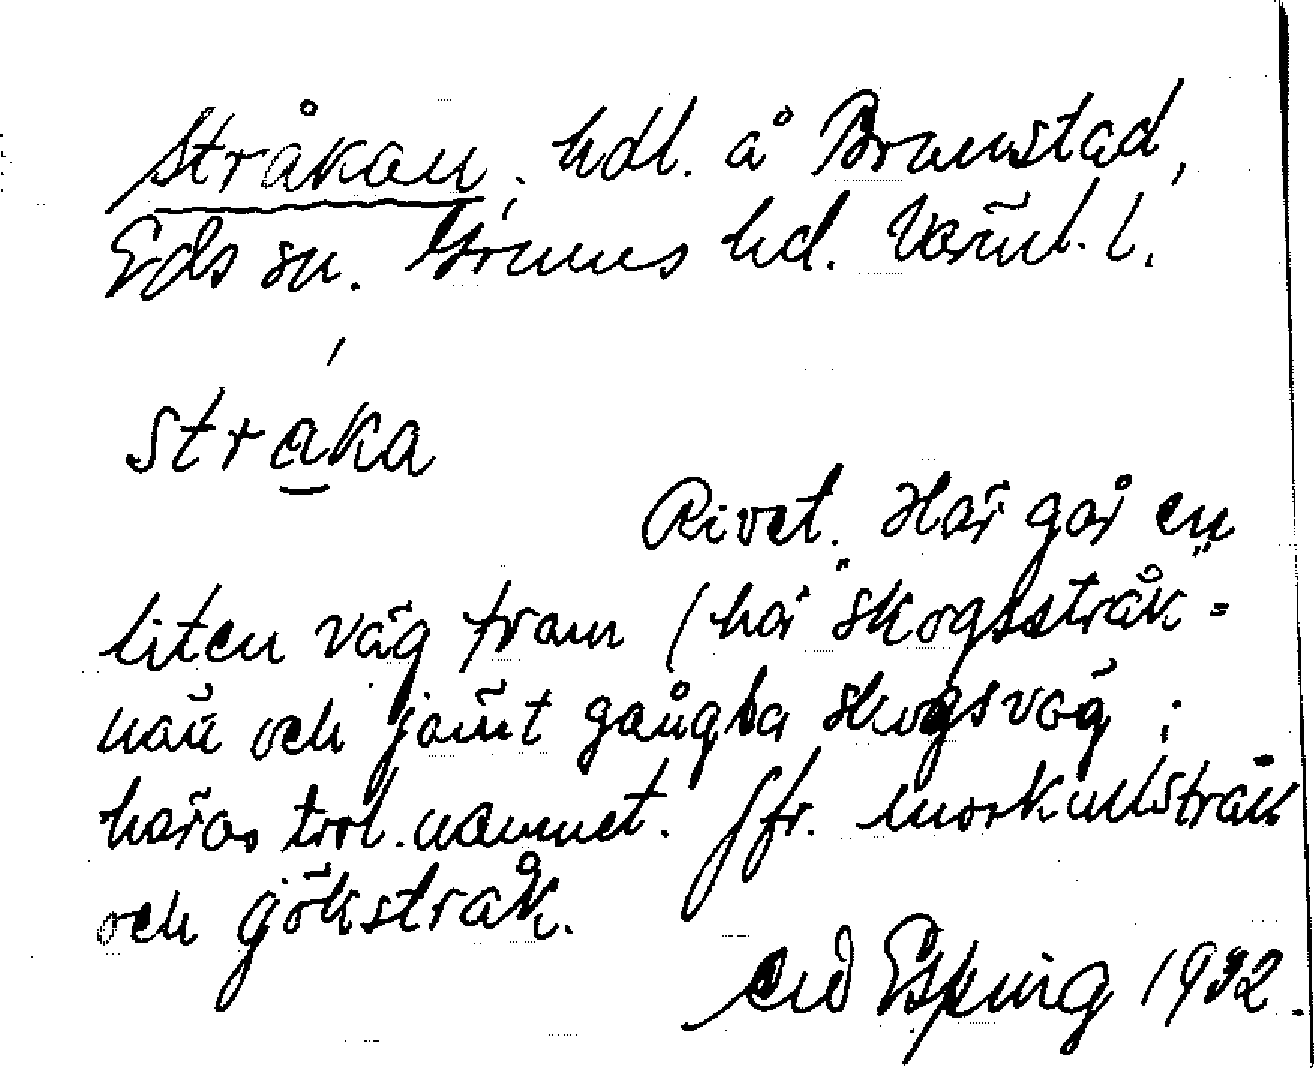 Stråkan, hdl. å Bramstad,
Eds sn. Grums hd. Värml. l.
stráka
Rivet. Här går en
liten väg fram (här "skogsstråk"=
när och jämt gångba skogsväg;
härav trol. namnet. Jfr. morkullsträk
och gökstråk.
Erd Esping 1932.